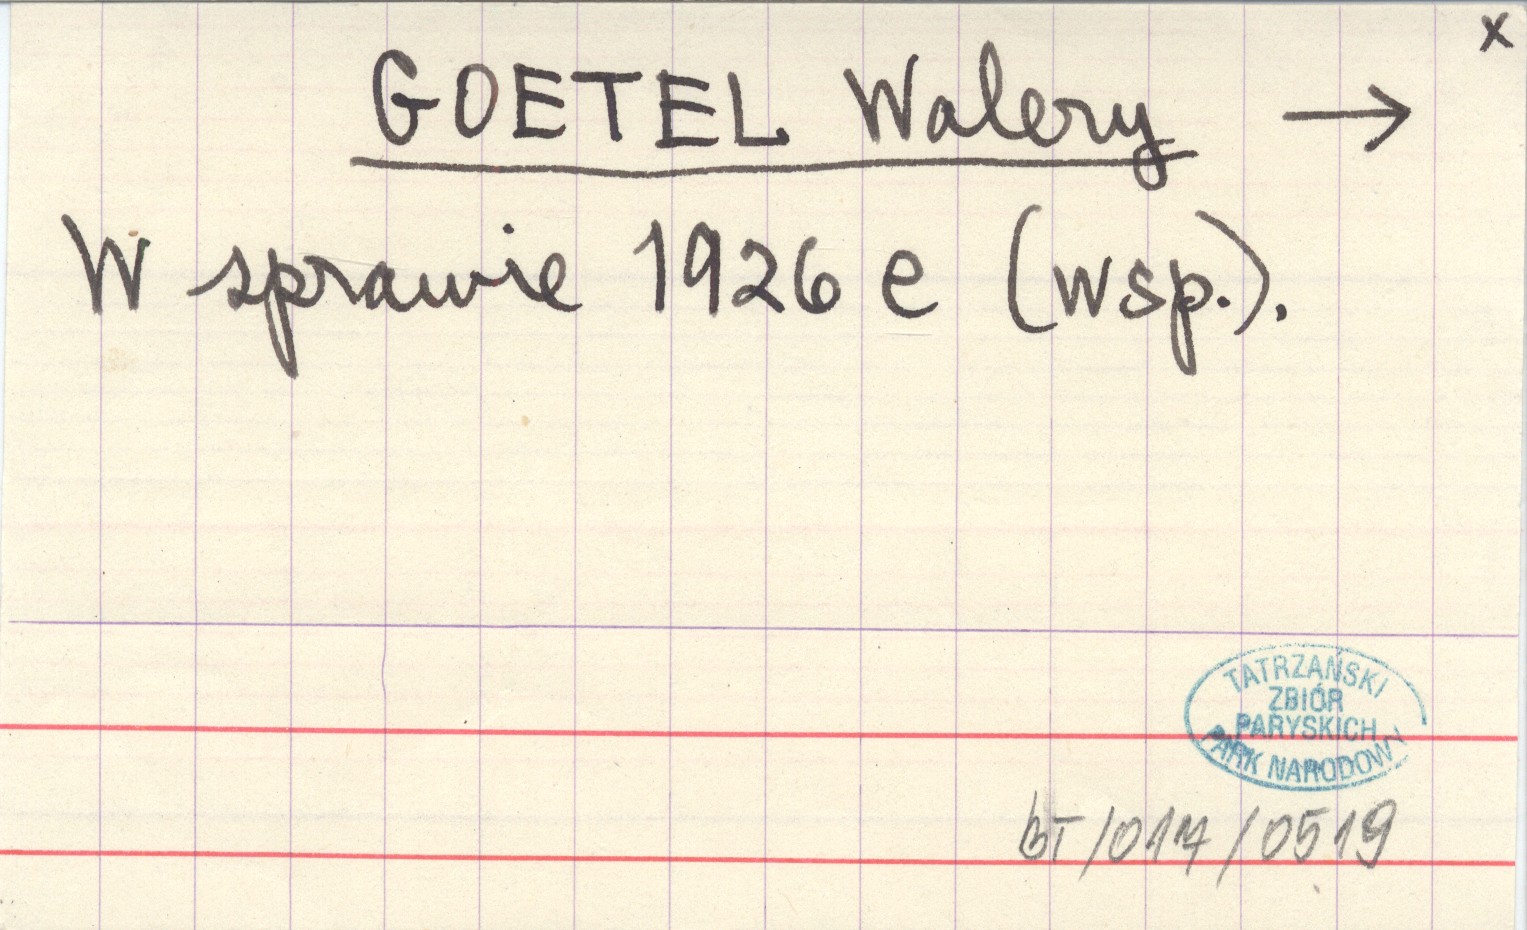 x
GOETEL Walery →
W sprawie 1926 e (wsp.).
TATRZAŃSKI
ZBIÓR
PARYSKICH
PARK NARODOWY
BT/017/0519